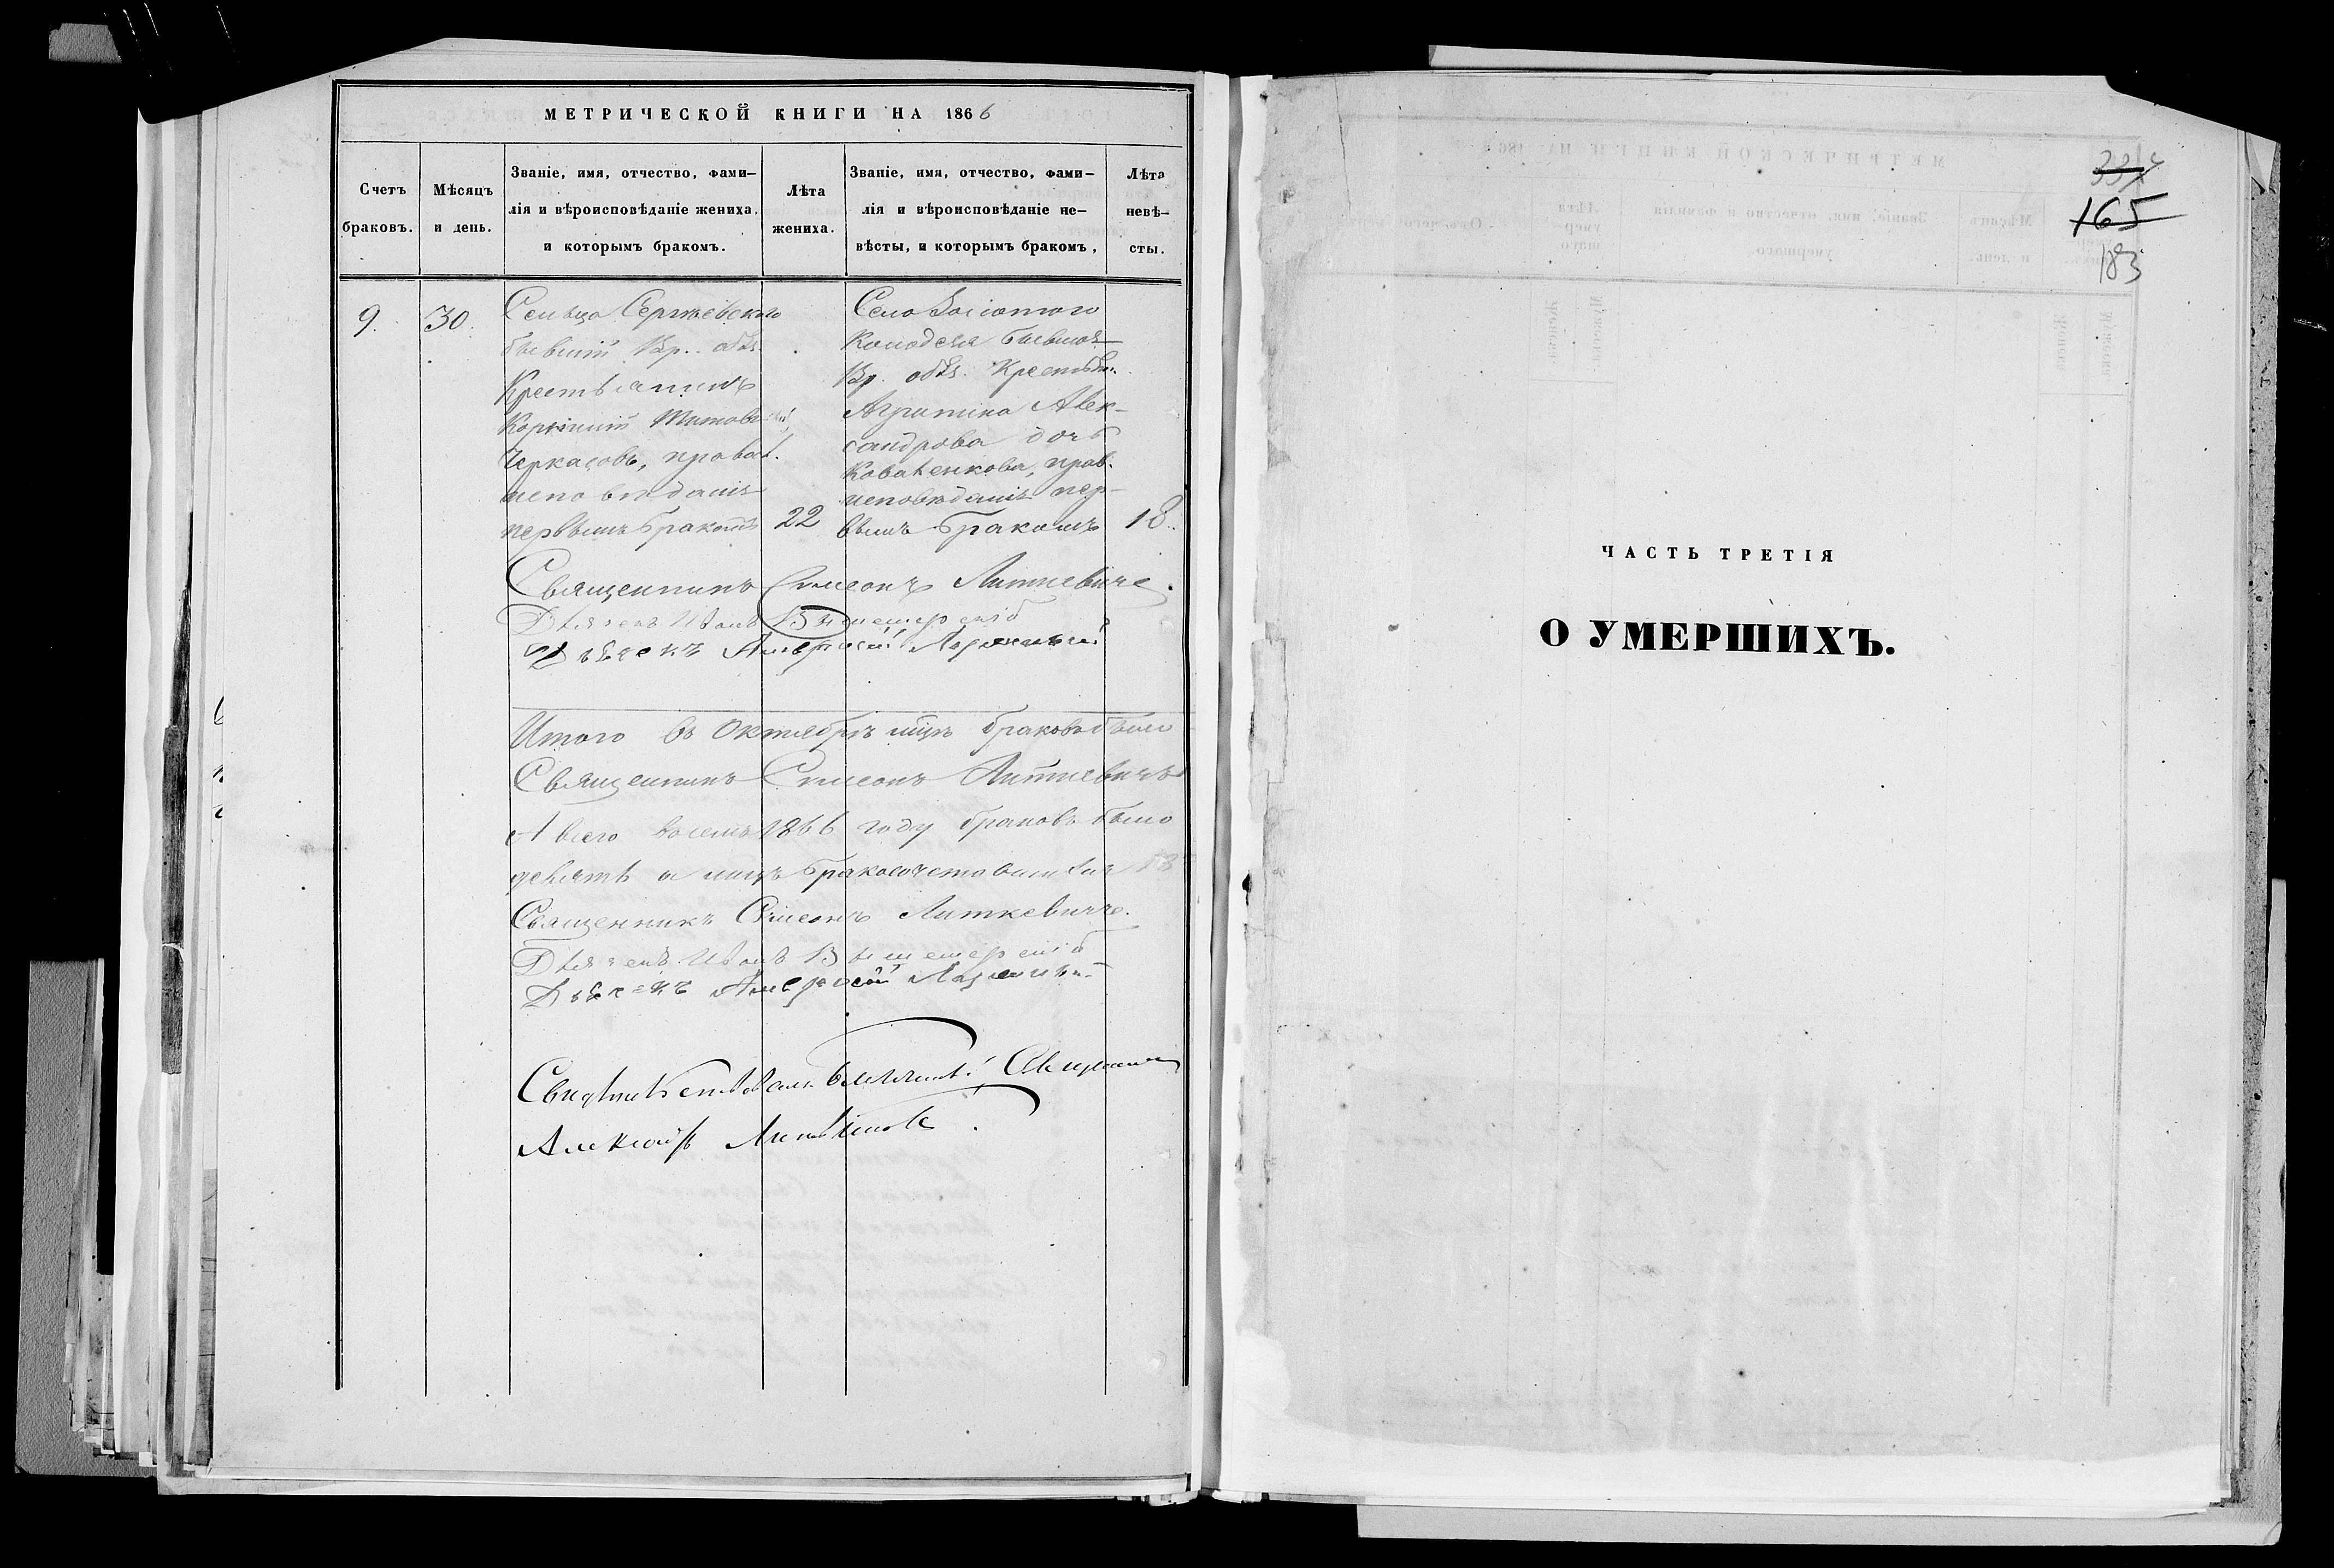 МЕТРИЧЕСКОЙ КНИГИ НА 1866
Счетъ браковъ.
Мѣсяцъ и день.
Званіе, имя, отчество, фами-
лія и вѣроисповѣданіе жениха,
и которымъ бракомъ.
Лѣта жениха.
Званіе, имя, отчество, фами-
лія и вѣроисповѣданіе не-
вѣсты, и которымъ бракомъ,
Лѣта невѣ-
сты.
9.
30.
Сельца Сергѣевскаго
бывшій Вр. обяз.
Крестьянинъ
Титовъ
Черкасовъ, правосл.
исповѣданія
первымъ бракомъ
22
Село
Колодезя бывшая
Вр. обяз. Крестьян.
Агрипина Алек-
сандрова дочь
Коваленкова, прав.
исповѣданія пер-
вымъ бракомъ
18.
Священникъ Симеонъ Литкевичъ.
Дьячекъ Иванъ Вышемерскій
Дьячекъ Амвросій
Итого въ Октябрѣ мцѣ браковъ было
Священникъ Симеонъ Литкевичъ
А всего въ семъ 1866 году браковъ было
девять а лицъ бракосочетовшихся 18
Священникъ Симеонъ Литкевичъ.
Дьячекъ Иванъ Вышемерскій
Дьячекъ Амвросій
Свидѣтельствовалъ Благочинный Священникъ
334
165
183
ЧАСТЬ ТРЕТІЯ
О УМЕРШИХЪ.